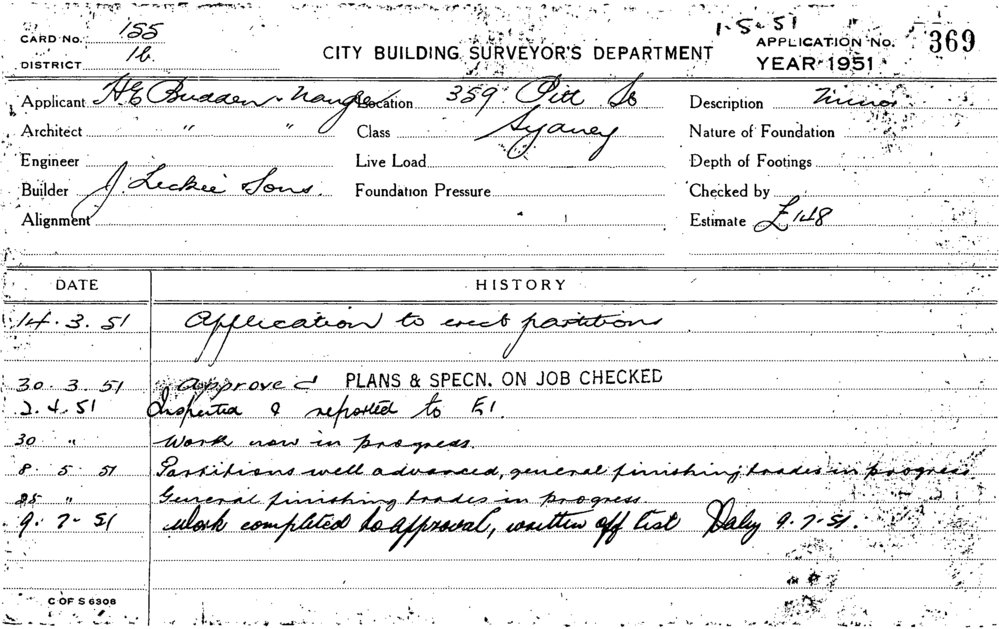 CARD No. 155 1-5-51 " APPLICATION No. 369
DISTRICT 1b. CITY BUILDING SURVEYOR'S DEPARTMENT YEAR 1951
Applicant H E Budden Location 359 Pitt St Description Minor
Architect " " Class Sydney Nature of Foundation
Engineer Live Load Depth of Footings
Builder J. Leckie Sons. Foundation Pressure Checked by
Alignment Estimate £148
DATE HISTORY
14.3.51 Application to erect partitions
30.3.51 Approved PLANS & SPECN. ON JOB CHECKED
2.4.51 Inspected & reported to
30 " Work now in progress.
8 5 51 Partitions well advanced, general finishing trades in progress
25 " General finishing trades in progress.
9.7.51 Work completed to approval, written off list Daly 9.7.51.
C OF S 6308